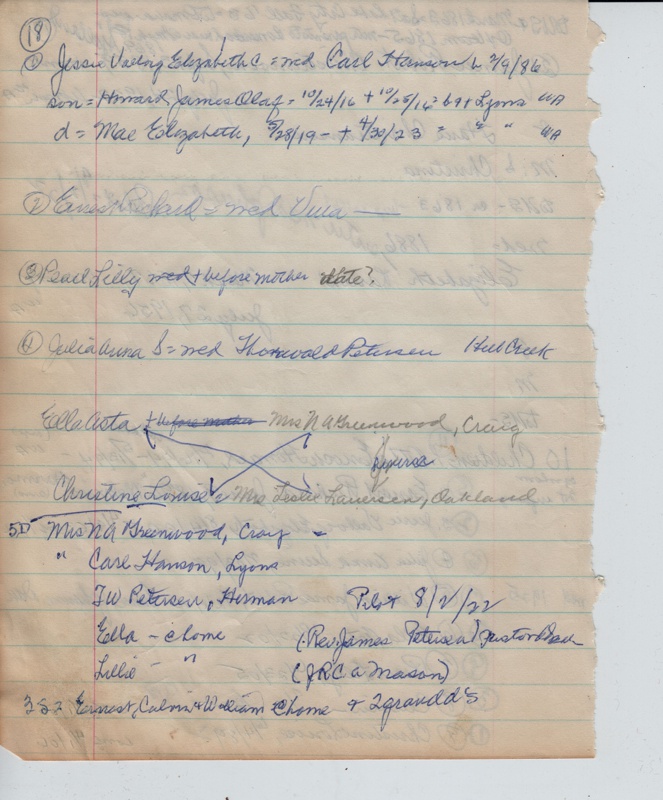 18
① Jessie Elizabeth C = med Carl Hanson b 2/9/86
son = Howard James Olaf = 10/24/16 + 10/25/16 = b9+ Lyons WA
d = Mae Elizabeth, 5/28/19 - + 4/30/23 = " " WA
② Ernest Richard = med
③ Pearl Lilly med + before mother date?
④ Julia Anna S = med Thorwald Petersen Hill Creek
Ella Asta + before mother Mrs N A Greenwood, Craig
Reverse
Christine Louise = Mrs Leslie Lauersen, Oakland
5D Mrs N A Greenwood, Craig =
" Carl Hanson, Lyons
T W Petersen, Herman Pilot 8/2/22
Ella - @ home (Rev. James Petersen) Pastor
Lillie - " (J R C a Mason)
3 S = Ernest, Calvin + William @ home + 2 grandd's